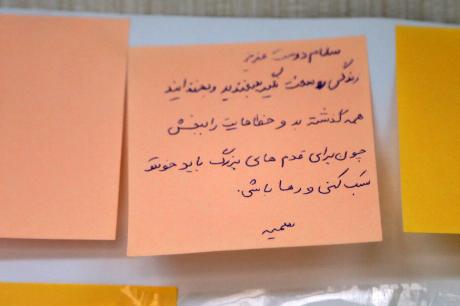 سلام دوست عزیز
زندگی رو سخت نگیر بخندید و بخندانید
همه گذشته بد و خطاهایت را ببخش
چون برای قدم های بزرگ باید خودتو
سَبُک کنی و رها باشی.
سمیه